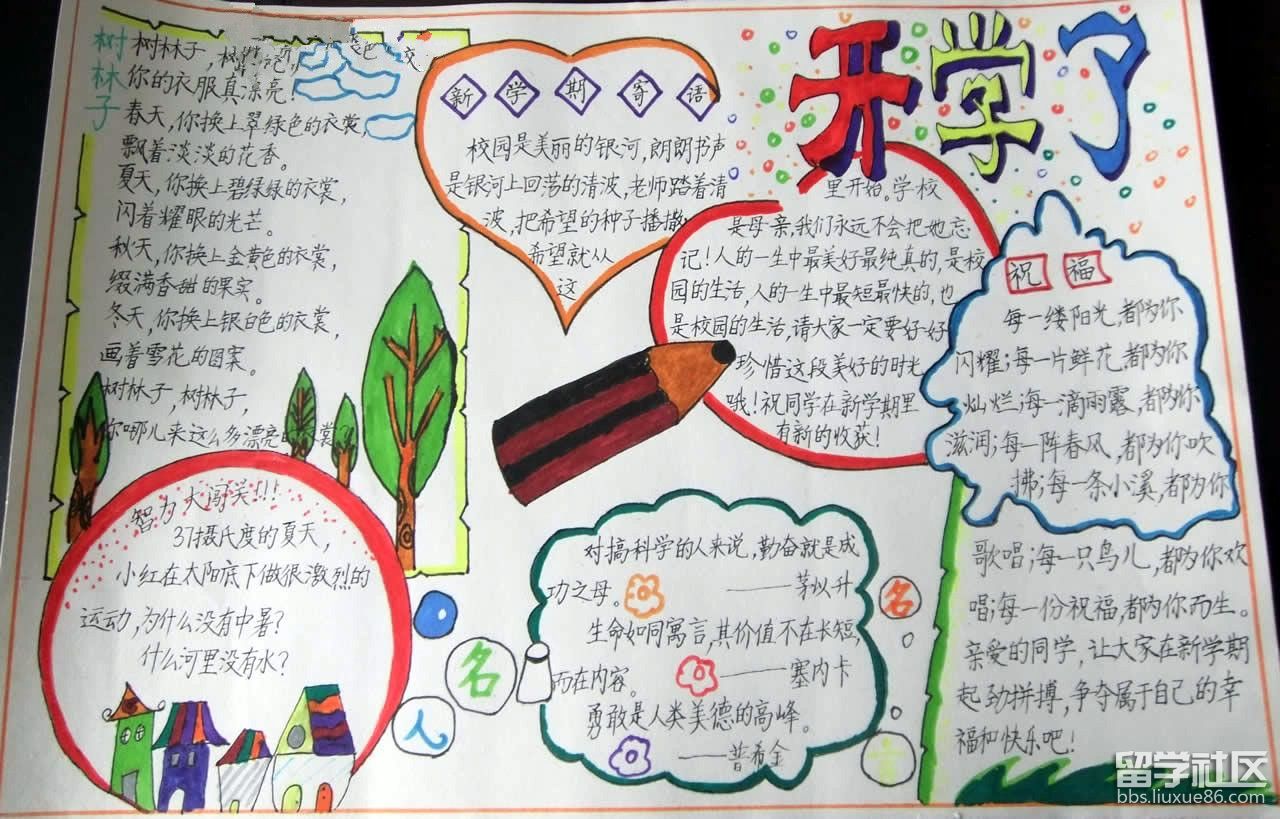 开学了
树林子
树林子,树
你的衣服真漂亮!
春天,你换上翠绿色的衣裳,
飘着淡淡的花香。
夏天,你换上碧绿绿的衣裳,
闪着耀眼的光芒。
秋天,你换上金黄色的衣裳,
缀满香甜的果实。
冬天,你换上银白色的衣裳,
画着雪花的图案。
树林子,树林子,
你哪儿来这么多漂亮的衣裳?
新学期寄语
校园是美丽的银河,朗朗书声
是银河上回荡的清波,老师踏着清
波,把希望的种子播撒
希望就从
这
里开始。学校
是母亲,我们永远不会把她忘
记!人的一生中最美好最纯真的,是校
园的生活,人的一生中最短最快的,也
是校园的生活,请大家一定要好好
珍惜这段美好的时光
哦!祝同学在新学期里
有新的收获!
祝福
每一缕阳光,都为你
闪耀;每一片鲜花,都为你
灿烂;每一滴雨露,都为你
滋润;每一阵春风,都为你吹
拂;每一条小溪,都为你
歌唱;每一只鸟儿,都为你欢
唱;每一份祝福,都为你而生。
亲爱的同学,让大家在新学期
起劲拼搏,争夺属于自己的幸
福和快乐吧!
智力大闯关!!!
37摄氏度的夏天,
小红在太阳底下做很激烈的
运动,为什么没有中暑?
什么河里没有水?
名人
名言
对搞科学的人来说,勤奋就是成
功之母。 ——茅以升
生命如同寓言,其价值不在长短,
而在内容。 ——塞内卡
勇敢是人类美德的高峰。
——普希金
留学社区
bbs.liuxue86.com